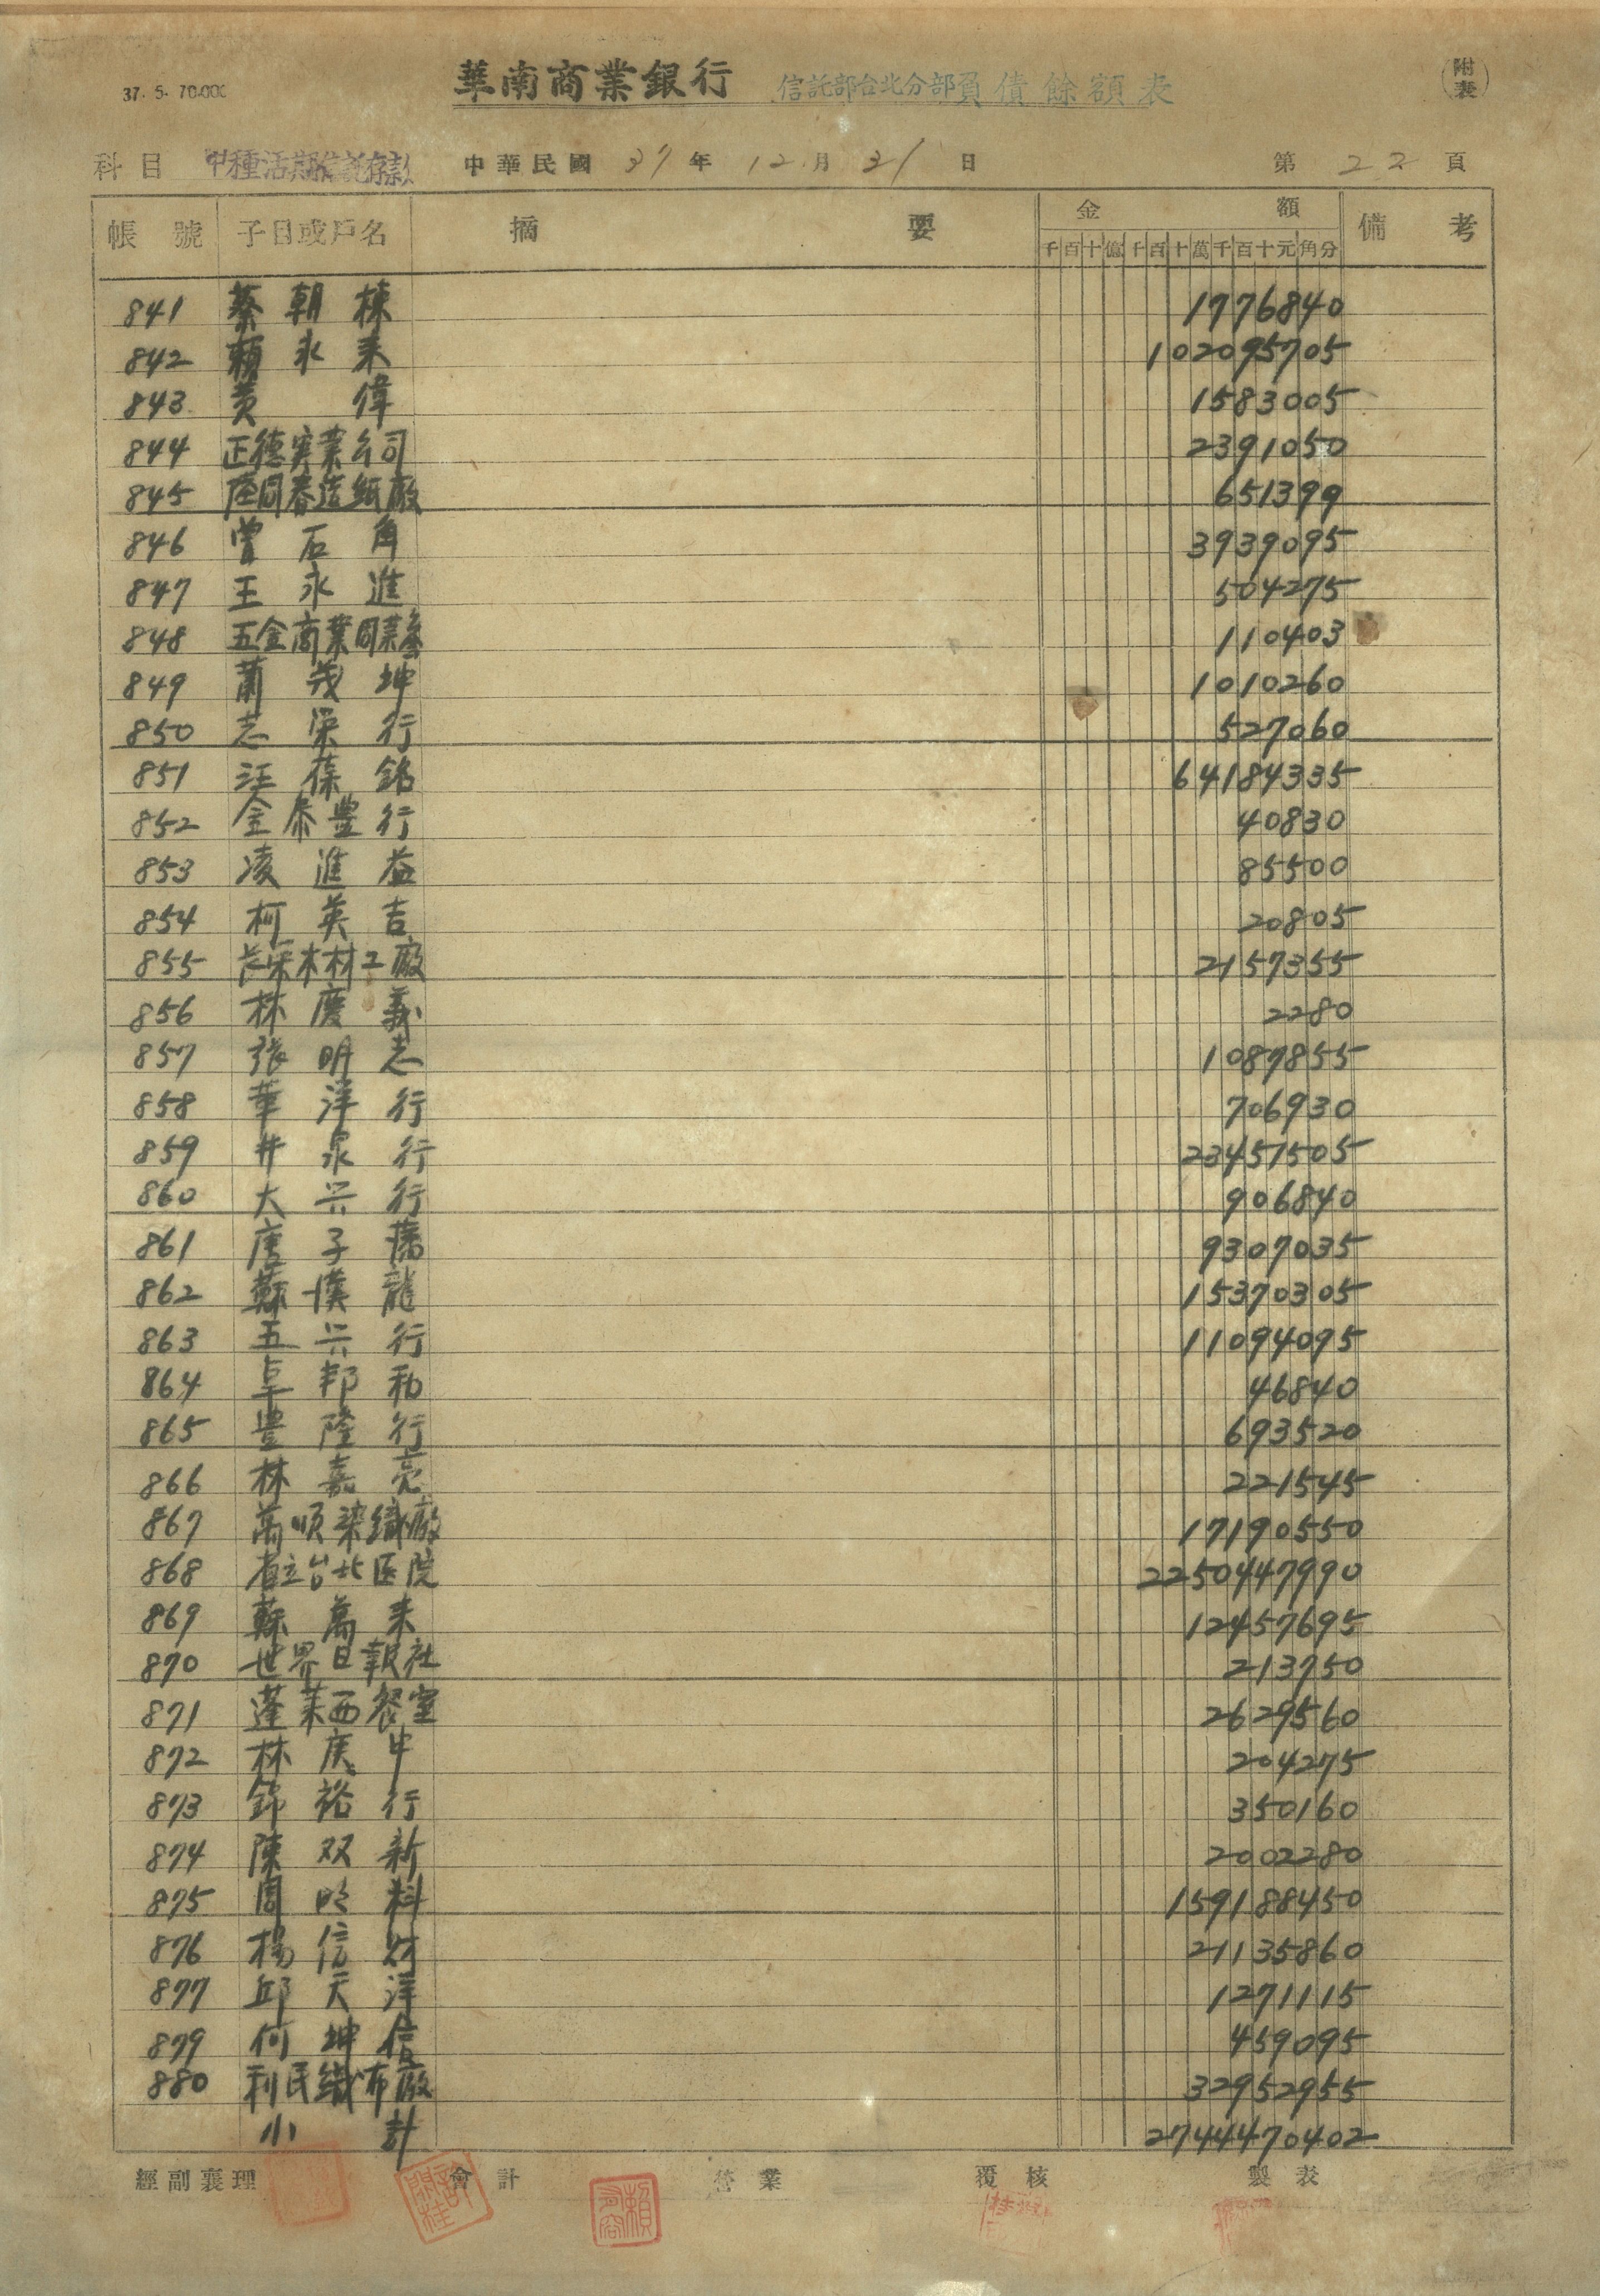 37. 5. 70.000
華南商業銀行 信託部台北分部負債餘額表
附表
科目 甲種活期信託存款 中華民國 37 年 12 月 31 日 第 22 頁
帳號 子目或戶名 摘要 金額 備考
千百十億千百十萬千百十元角分
841 蔡朝棟 1776840
842 賴永来 102095705
843 黃偉 1583005
844 正德実業公司 2391050
845 同春造紙廠 651399
846 曾石角 3939095
847 王永進 504275
848 五金商業同業 110403
849 蕭茂坤 1010260
850 志榮行 527060
851 汪葆銘 64184335
852 金泰豊行 40830
853 凌進益 85500
854 柯英吉 20805
855 長栄木材工廠 2157355
856 林慶義 2280
857 張明志 1087855
858 華洋行 706930
859 井泉行 23451505
860 大兴行 906840
861 唐子藩 9307035
862 蘇漢龍 15370305
863 五兴行 11094095
864 卓邦和 46840
865 豊隆行 693520
866 林嘉亮 221545
867 萬順染織廠 17190550
868 省立台北医院 2250447990
869 蘇萬来 12457695
870 世界日報社 213750
871 蓬莱西餐室 2629560
872 林庚申 204275
873 錦裕行 350160
874 陳双新 2002280
875 周 料 159188450
876 楊信 21135860
877 邱天洋 1271115
879 何坤信 459095
880 利民織布廠 32952955
小計 2744470402
經副襄理 會計 營業 覆核 製表